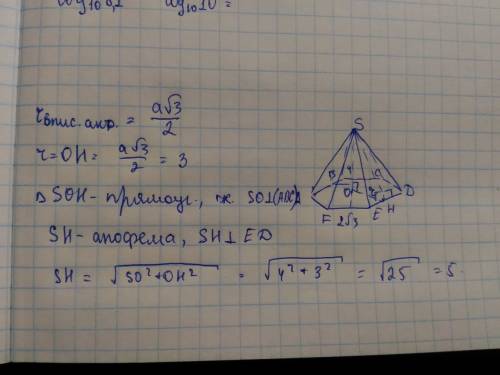 log₁₀ 0,1 log₁₀ 10 =
r впис. окр. = a√3/2
r = OH = a√3/2 = 3
Δ SOH - прямоуг., т.к. SO⊥(ABC)
SH - апофема, SH ⊥ ED
SH = √(SO² + OH²) = √(4² + 3²) = √25 = 5.
S
B
C
4
O
D
F 2√3 E H